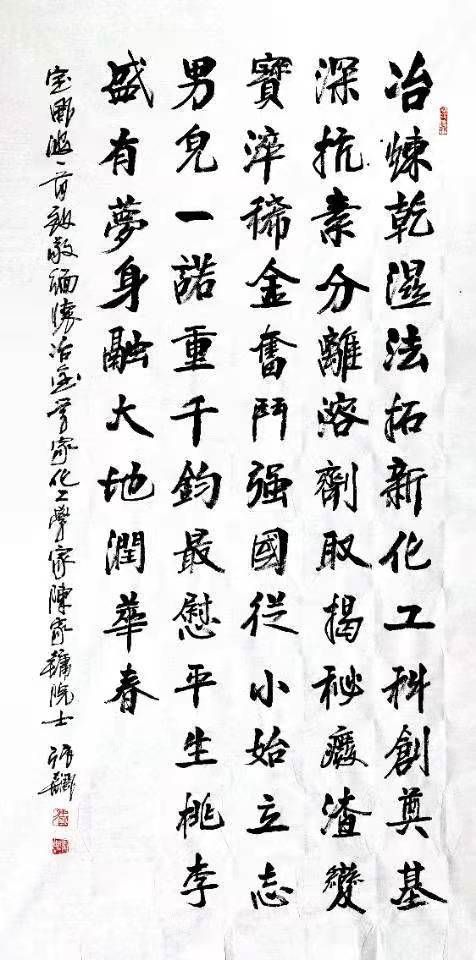 冶煉乾濕法拓新化工科創奠基
深抗素分離溶劑取揭秘廢渣變
寶滓稀金奮鬥强國從小始立志
男兒一諾重千鈞最慰平生桃李
盛有夢身融大地潤華春
敬緬懷冶金学家化工學家陳家鏞院士